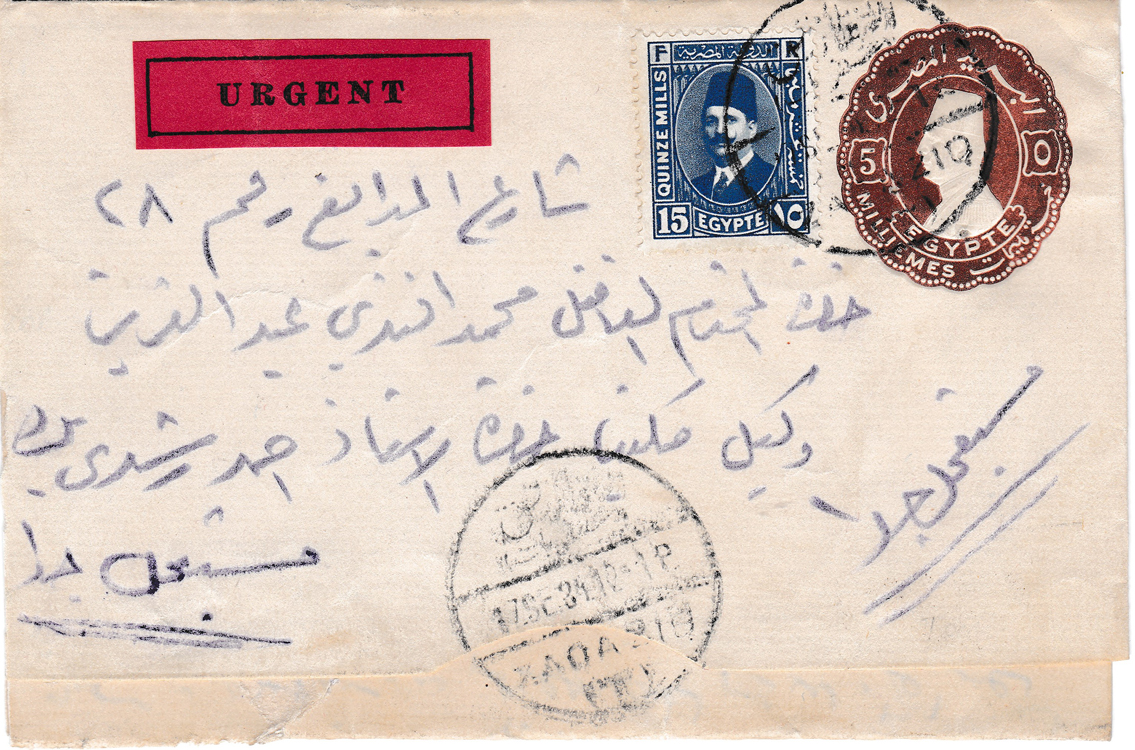 URGENT
الدولة المصرية
F R
QUINZE MILLS
15 EGYPTE ١٥
البريد المصرى
5 ٥
MILLIEMES
EGYPTE
شارع المدابغ رقم ٢٨
حضرة المحترم الفاضل محمد افندي عبد
وكيل مكتب حضرة الاستاذ احمد رشدي
مستعجل جدا
مستعجل جدا
17.DE.34.12-1P